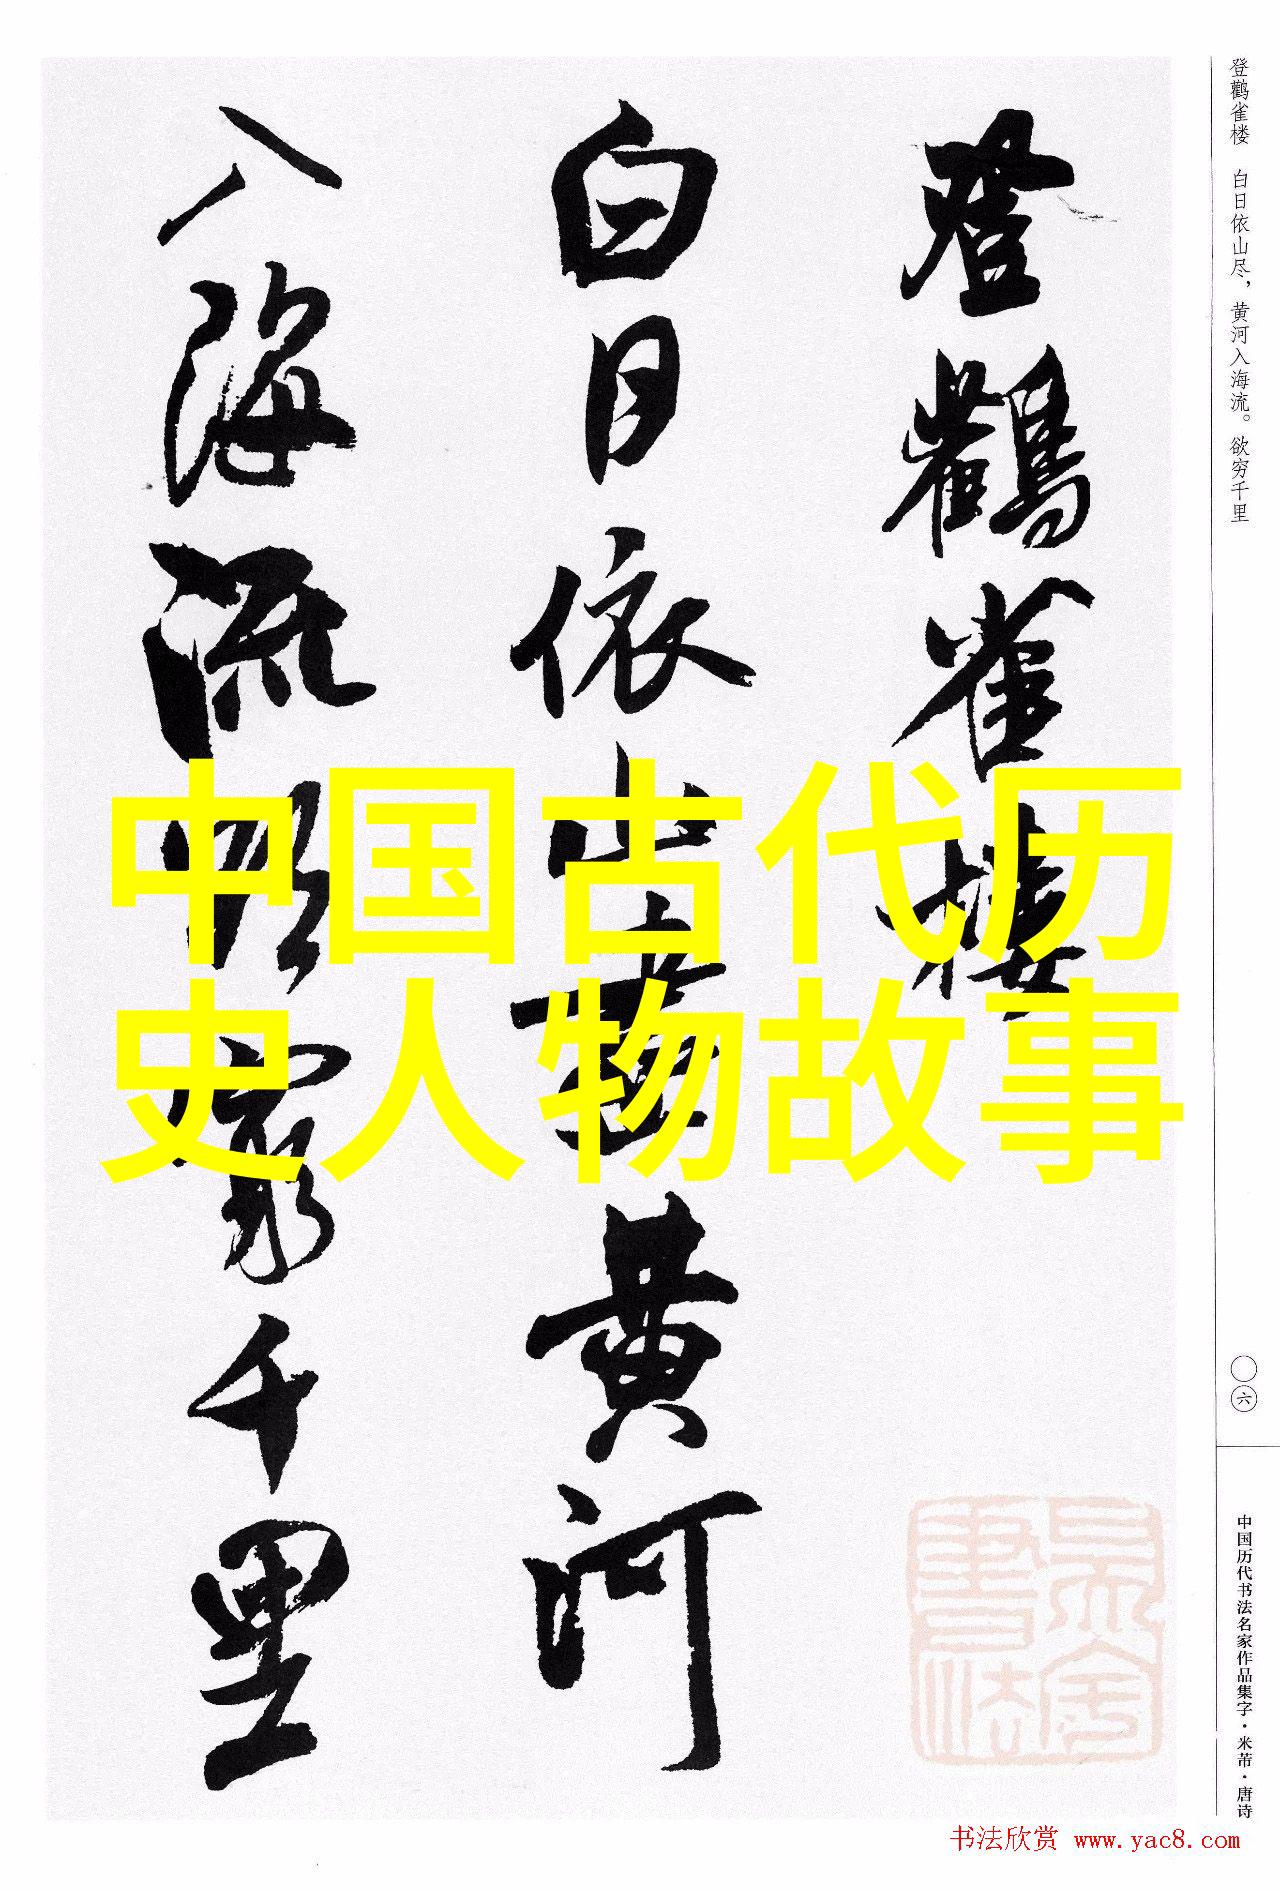 登鹳雀楼 白日依山尽，黄河入海流。欲穷千里
〇六
中国历代书法名家作品集字·米芾·唐诗
登鸛雀樓
白日依山盡黄河
入海流欲窮千里
中国古代历
史人物故事
书法欣赏 www.yac8.com